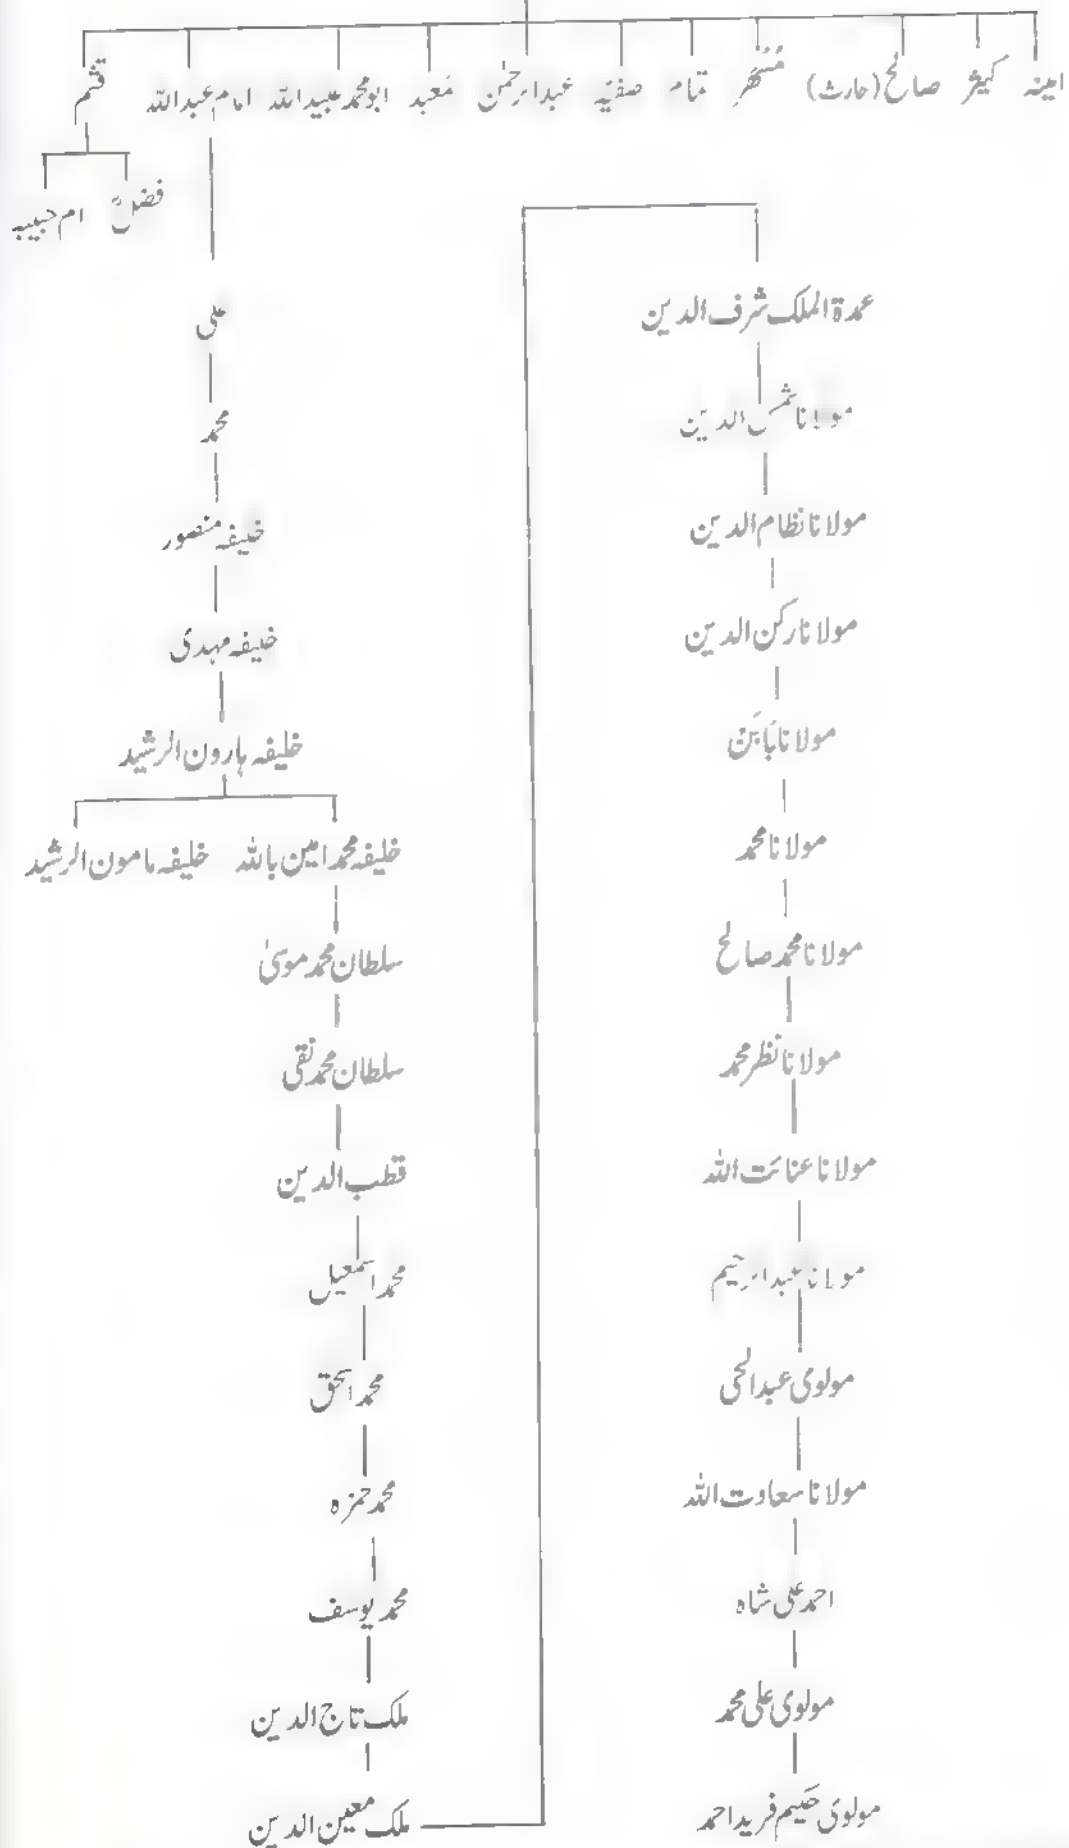 امینہ کثیر صالح (حارث) مُسْہَر تمام صفیّہ عبدالرحمٰن مَعبد ابو محمد عبیداللہ امام عبداللہ قثم
فضلؓ ام حبیبہ
علی
محمد
خلیفہ منصور
خلیفہ مہدی
خلیفہ ہارون الرشید
خلیفہ محمد امین باللہ خلیفہ مامون الرشید
سلطان محمد موسیٰ
سلطان محمد نقی
قطب الدین
محمد اسمٰعیل
محمد اسحٰق
محمد حمزہ
محمد یوسف
ملک تاج الدین
ملک معین الدین
عمدۃ الملک شرف الدین
مولانا شمس الدین
مولانا نظام الدین
مولانا رکن الدین
مولانا بَابَن
مولانا محمد
مولانا محمد صالح
مولانا نظر محمد
مولانا عنائت اللہ
مولانا عبدالرحیم
مولوی عبدالحی
مولانا سعادت اللہ
احمد علی شاہ
مولوی علی محمد
مولوی حکیم فرید احمد